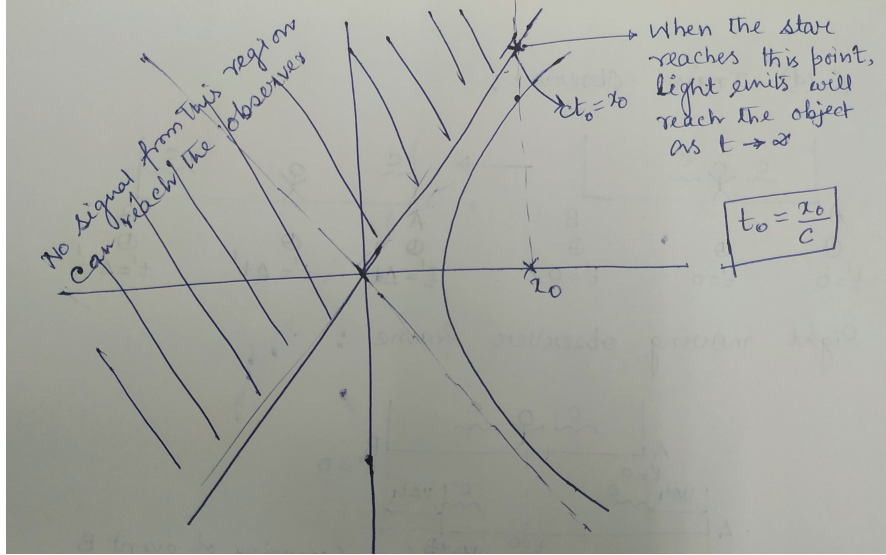 No signal from this region
can reach the observer
When the star
reaches this point,
light emits will
reach the object
as t → ∞
ct₀ = x₀
t₀ = x₀/c
x₀